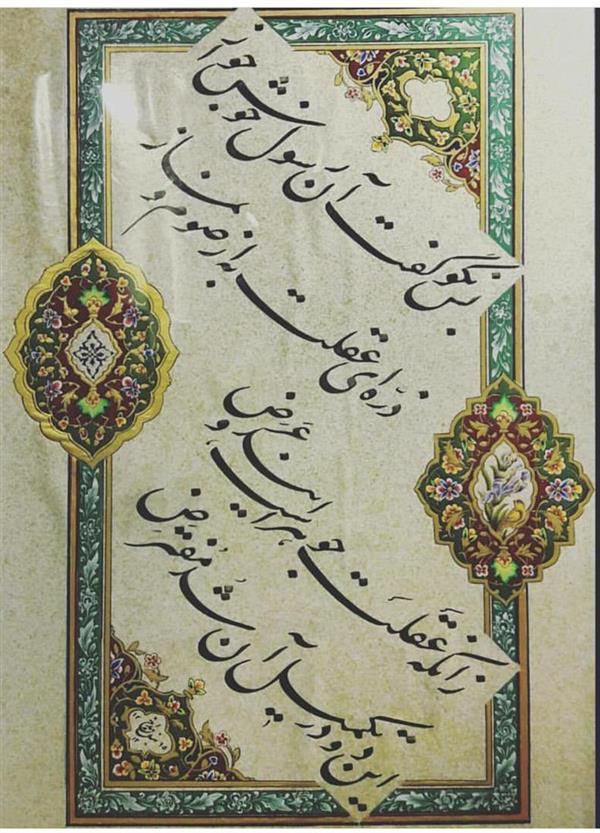 بس نکو گفت آن رسول خوش جواز
ذره‌ای عقلت به از صوم و نماز
زانکه عقلت جوهرست این دو عرض
این دو در تکمیل آن شد مفترض